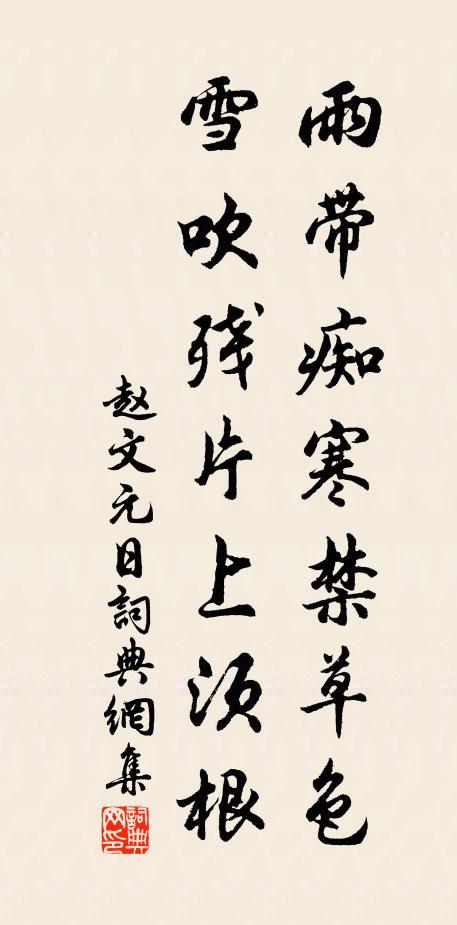 雨带痴寒禁草色
雪吹残片上须根
赵文元日詞典網集
詞典网印